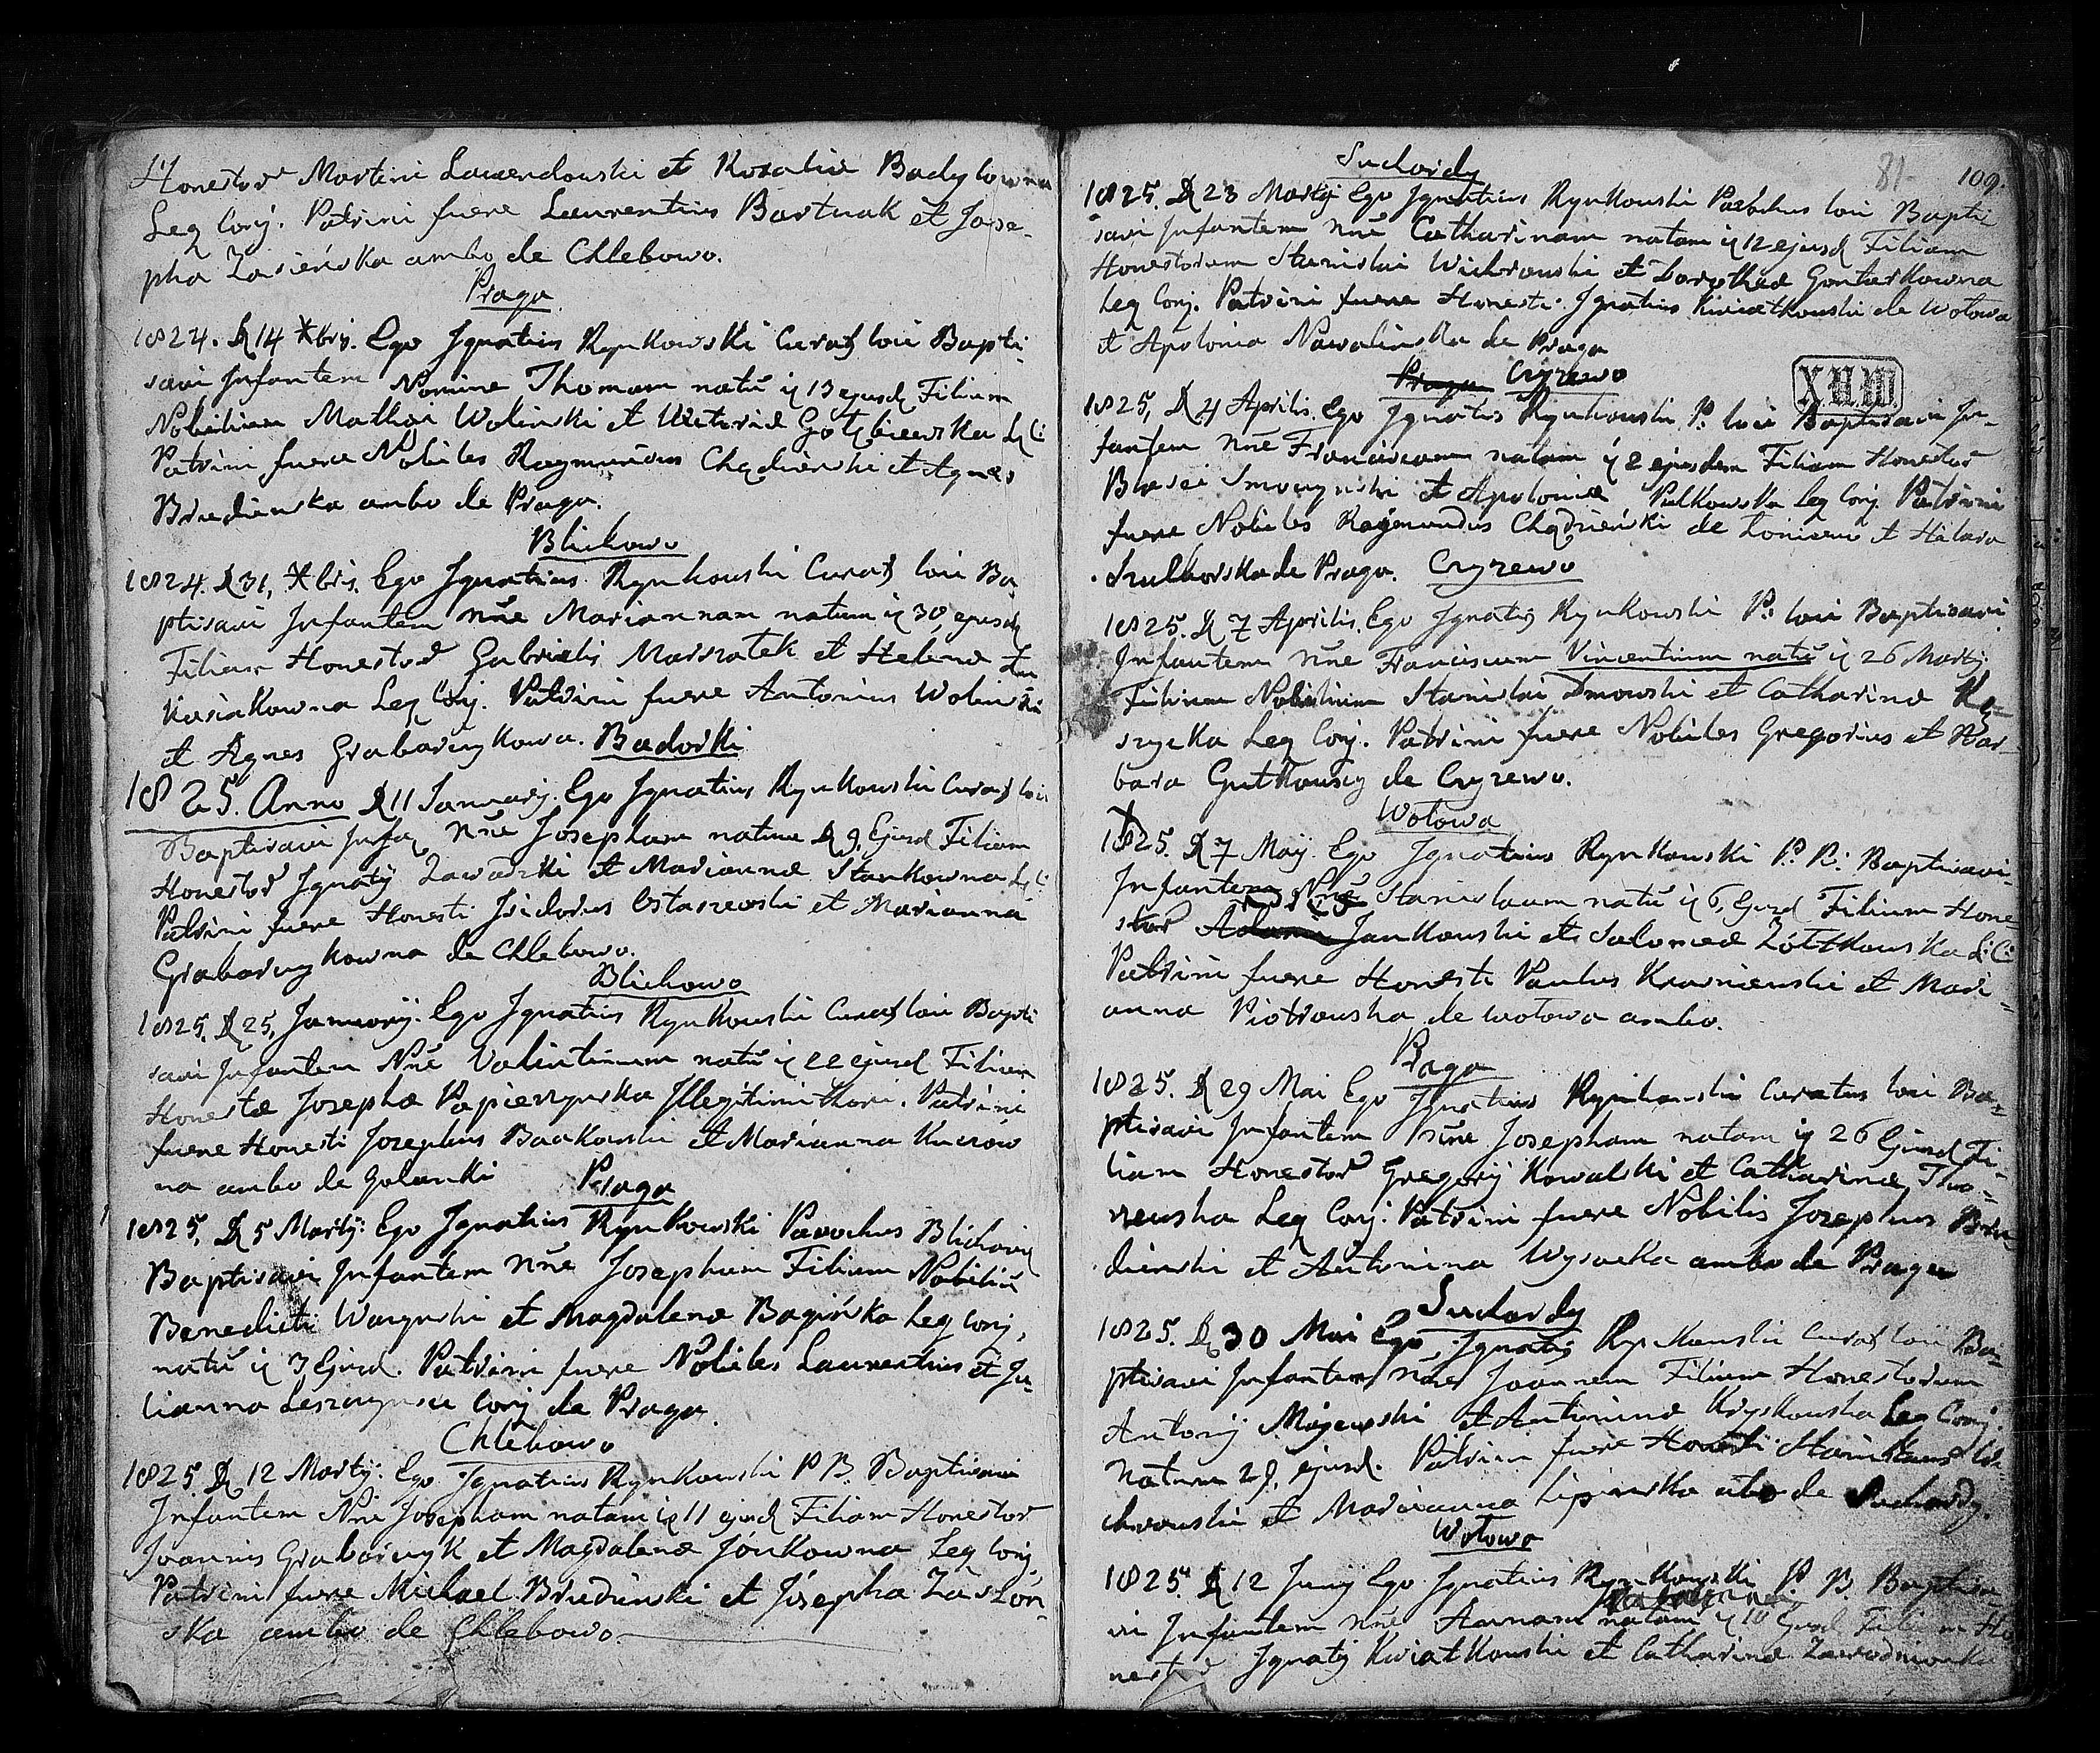 Honestor Martini Lawendowski et Rosalia Badylowna
Leg Conj. Patrini fuere Laurentius Bartnak et Jose-
pha Zasieńska ambo de Chlebowo.
Praga
1824. D 14 Xbris. Ego Ignatius Rynkowski Curat loci Bapti-
savi Infantem Nomine Thomam natū q 13 ejusd Filium
Nobilium Mathei Wolinski et Victoria Gołębiewska L C
Patrini fuere Nobiles Raymundus Chądzieński et Agnes
Brudzienska ambo de Praga.
Blichowo
1824. D 31, Xbris. Ego Ignatius Rynkowski Curat loci Ba
ptisavi Infantem Nne Mariannam natam q 30, ejusd
Filiam Honestor Gabrielis Marszałek et Helena Lu
kasiakowna Leg Conj. Patrini fuere Antonius Wolinski
et Agnes Grabarczykowa. Badorki
1825. Anno D 11 Januarij. Ego Ignatius Rynkowski Curat loci
Baptisavi Infa Nne Josepham natam D 9, Ejusd Filiam
Honestor Ignatij Zawadzki et Marianna Stankowna L C
Patrini fuere Honesti Isidorus Ostaszewski et Marianna
Grabarczykowna de Chlebowo.
Blichowo
1825. D 25, Januarij. Ego Ignatius Rynkowski Curat loci Bapti
savi Infantem Nne Valentinum natū q 22 ejusd Filium
Honestæ Josepha Papierzynska Illegitimi thori. Patrini
fuere Honesti Josephus Baakowski et Marianna Kucrów
na ambo de Golanki
Praga
1825, D 5 Martij: Ego Ignatius Rynkowski Parochus Blichovi
Baptisavi Infantem Nne Josephum Filium Nobiliū
Benedicti Warynski et Magdalena Bagińska Leg Conj,
natū q 3 Ejusd. Patrini fuere Nobiles Laurentius et Ju-
lianna Leszczynscu Conj de Praga.
Chlebowo
1825 D 12 Martij: Ego Ignatius Rynkowski P B. Baptisavi
Infantem Nne Josepham natam q 11 ejusd Filiam Honestor
Joannis Grabarczyk et Magdalena Jónkowna Leg Conj,
Patrini fuere Michael Brudzinski et Józepha Zasłon-
ska ambo de Chlebowo
81 109.
Suchardy
1825. D 23 Martij Ego Ignatius Rynkowski Parochus loci Bapti
savi Infantem Nne Catharinam natam q 12 ejusd Filiam
Honestorum Stanislai Wichrowski et Dorothea Gontarkowna
Leg Conj. Patrini fuere Honesti Ignatius Kwiatkowski de Wołowa
et Apolonia Nawalinska de Praga
Praga Czyzewo
XIIIII
1825, D 4 Aprilis. Ego Ignatius Rynkowski P. loci Baptisavi In-
fantem Nne Franciscam natam q 2 ejusdem Filiam Honestor
Blasei Smoczynski et Apolonia Pulkowska Leg Conj Patrini
fuere Nobiles Raymundus Chądzieński de Loniewo et Helara
Szulborska de Praga. Czyzewo
1825. D 7 Aprilis. Ego Ignatius Rynkowski P. loci Baptisavi
Infantem Nne Franciscum Vincentium natū q 26 Martij.
Filium Nobilium Stanislai Dmowski et Catharina Ka-
szycka Leg Conj. Patrini fuere Nobiles Gregorius et Bar
bara Gutkowscy de Czyzewo.
Wołowa
1825. D 7 Maij Ego Ignatius Rynkowski P. P. Baptisavi
Infantem Nne Stanislaum natū q 6, Ejusd Filium Hone
stor Adama Jankowski et Salomea Zółtkowska L C
Patrini fuere Honesti Paulus Krasniewski et Mari-
anna Piotrowska de Wołowa ambo.
Praga
1825. D 29 Mai Ego Ignatius Rynkowski Curatus loci Ba-
ptisavi Infantem Nne Josepham natam q 26 Ejusd Fi-
liam Honestor Gregorij Kowalski et Catharina Tho-
rewska Leg Conj. Patrini fuere Nobilis Josephus Bru-
dzienski et Antonina Wysocka ambo de Praga
Suchardy
1825. D 30 Mai Ego, Ignatius Rynkowski Curat loci Ba-
ptisavi Infantem Nne Joannem Filium Honestorum
Antonij Majewski et Antonina Kryskowska Leg Conj
Natum 28, ejusd. Patrini fuere Honesti Stanislaus Wi-
chrowski et Marianna Lipinska abo de Suchardy.
Wołowo
1825 D 12 Junij Ego Ignatius Rynkowski P. B. Baptisa-
vi Infantem Nne Annam natam q 10 Ejusd Filiam Ho
nestor Ignatij Kwiatkowski et Catharina Zawodnionka